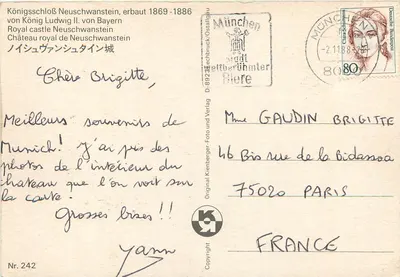 Königsschloß Neuschwanstein, erbaut 1869-1886
von König Ludwig II. von Bayern
Royal castle Neuschwanstein
Château royal de Neuschwanstein
ノイシュヴァンシュタイン城
Chère Brigitte,
Meilleurs souvenirs de
Munich! J'ai pris des
photos de l'intérieur du
chateau que l'on voit sur
la carte!
Grosses bises!!
Yann
Nr. 242
Original Kienberger-Foto und Verlag
Copyright
München
Stadt
weltberühmter
Biere
MÜNCHEN
-2.11.88
80
80
Mme GAUDIN BRIGITTE
46 Bis rue de la Bidassoa
75020 PARIS
FRANCE